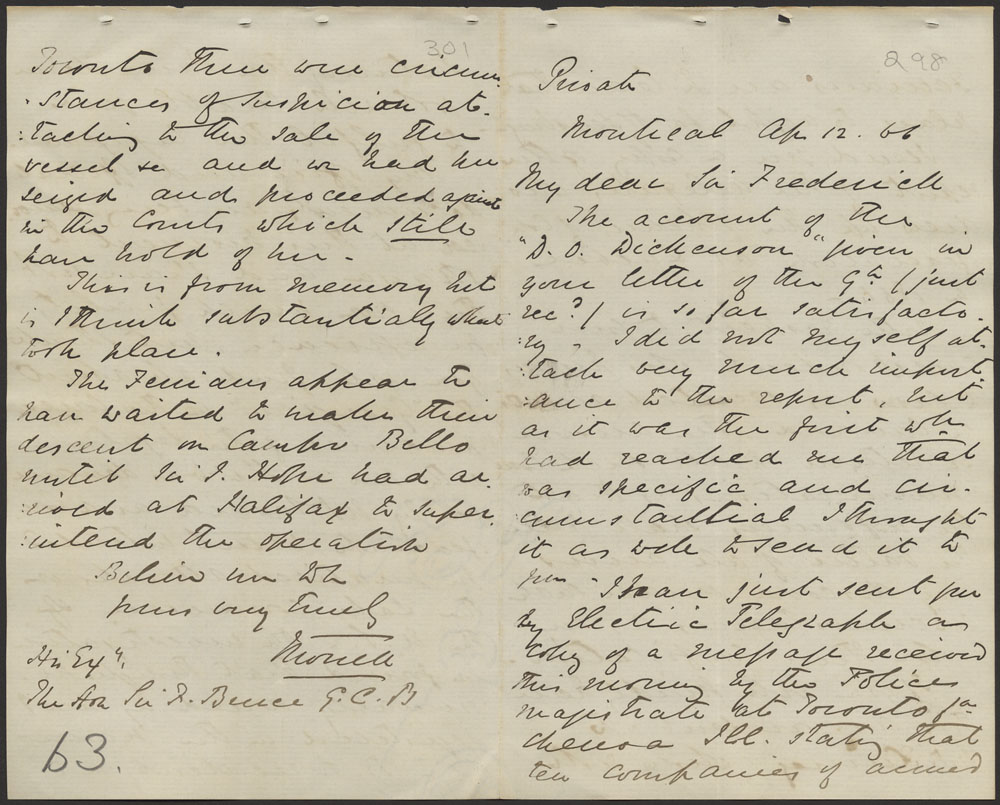 298
Private
Montreal Ap 12. 66
My dear Sir Frederick
The account of the
"D. O. Dickenson" given in
your letter of the 9th (just
recd) is so far satisfacto-
ry. I did not myself at-
:tach very much import-
:ance to the report, but
as it was the first wh
had reached me that
was specific and cir-
cumstantial I thought
it as well to send it to
you. I have just sent you
by Electric Telegraph a
copy of a message received
this morning by the Police
magistrate at Toronto
Ill. stating that
ten companies of armed
301
Toronto There were circum-
-stances of suspicion at-
:taching to the sale of the
vessel & and we had her
seized and proceeded against
in the Courts which still
have hold of her -
This is from memory but
is I think substantially what
took place.
The Fenians appear to
have waited to make their
descent on Campo Bello
until Sir J. Hope had ar-
:rived at Halifax to super-
:intend the operation
Believe me to be
yours very truly
Monck
His Exy.
The Hon Sir F. Bruce G.C.B
63.